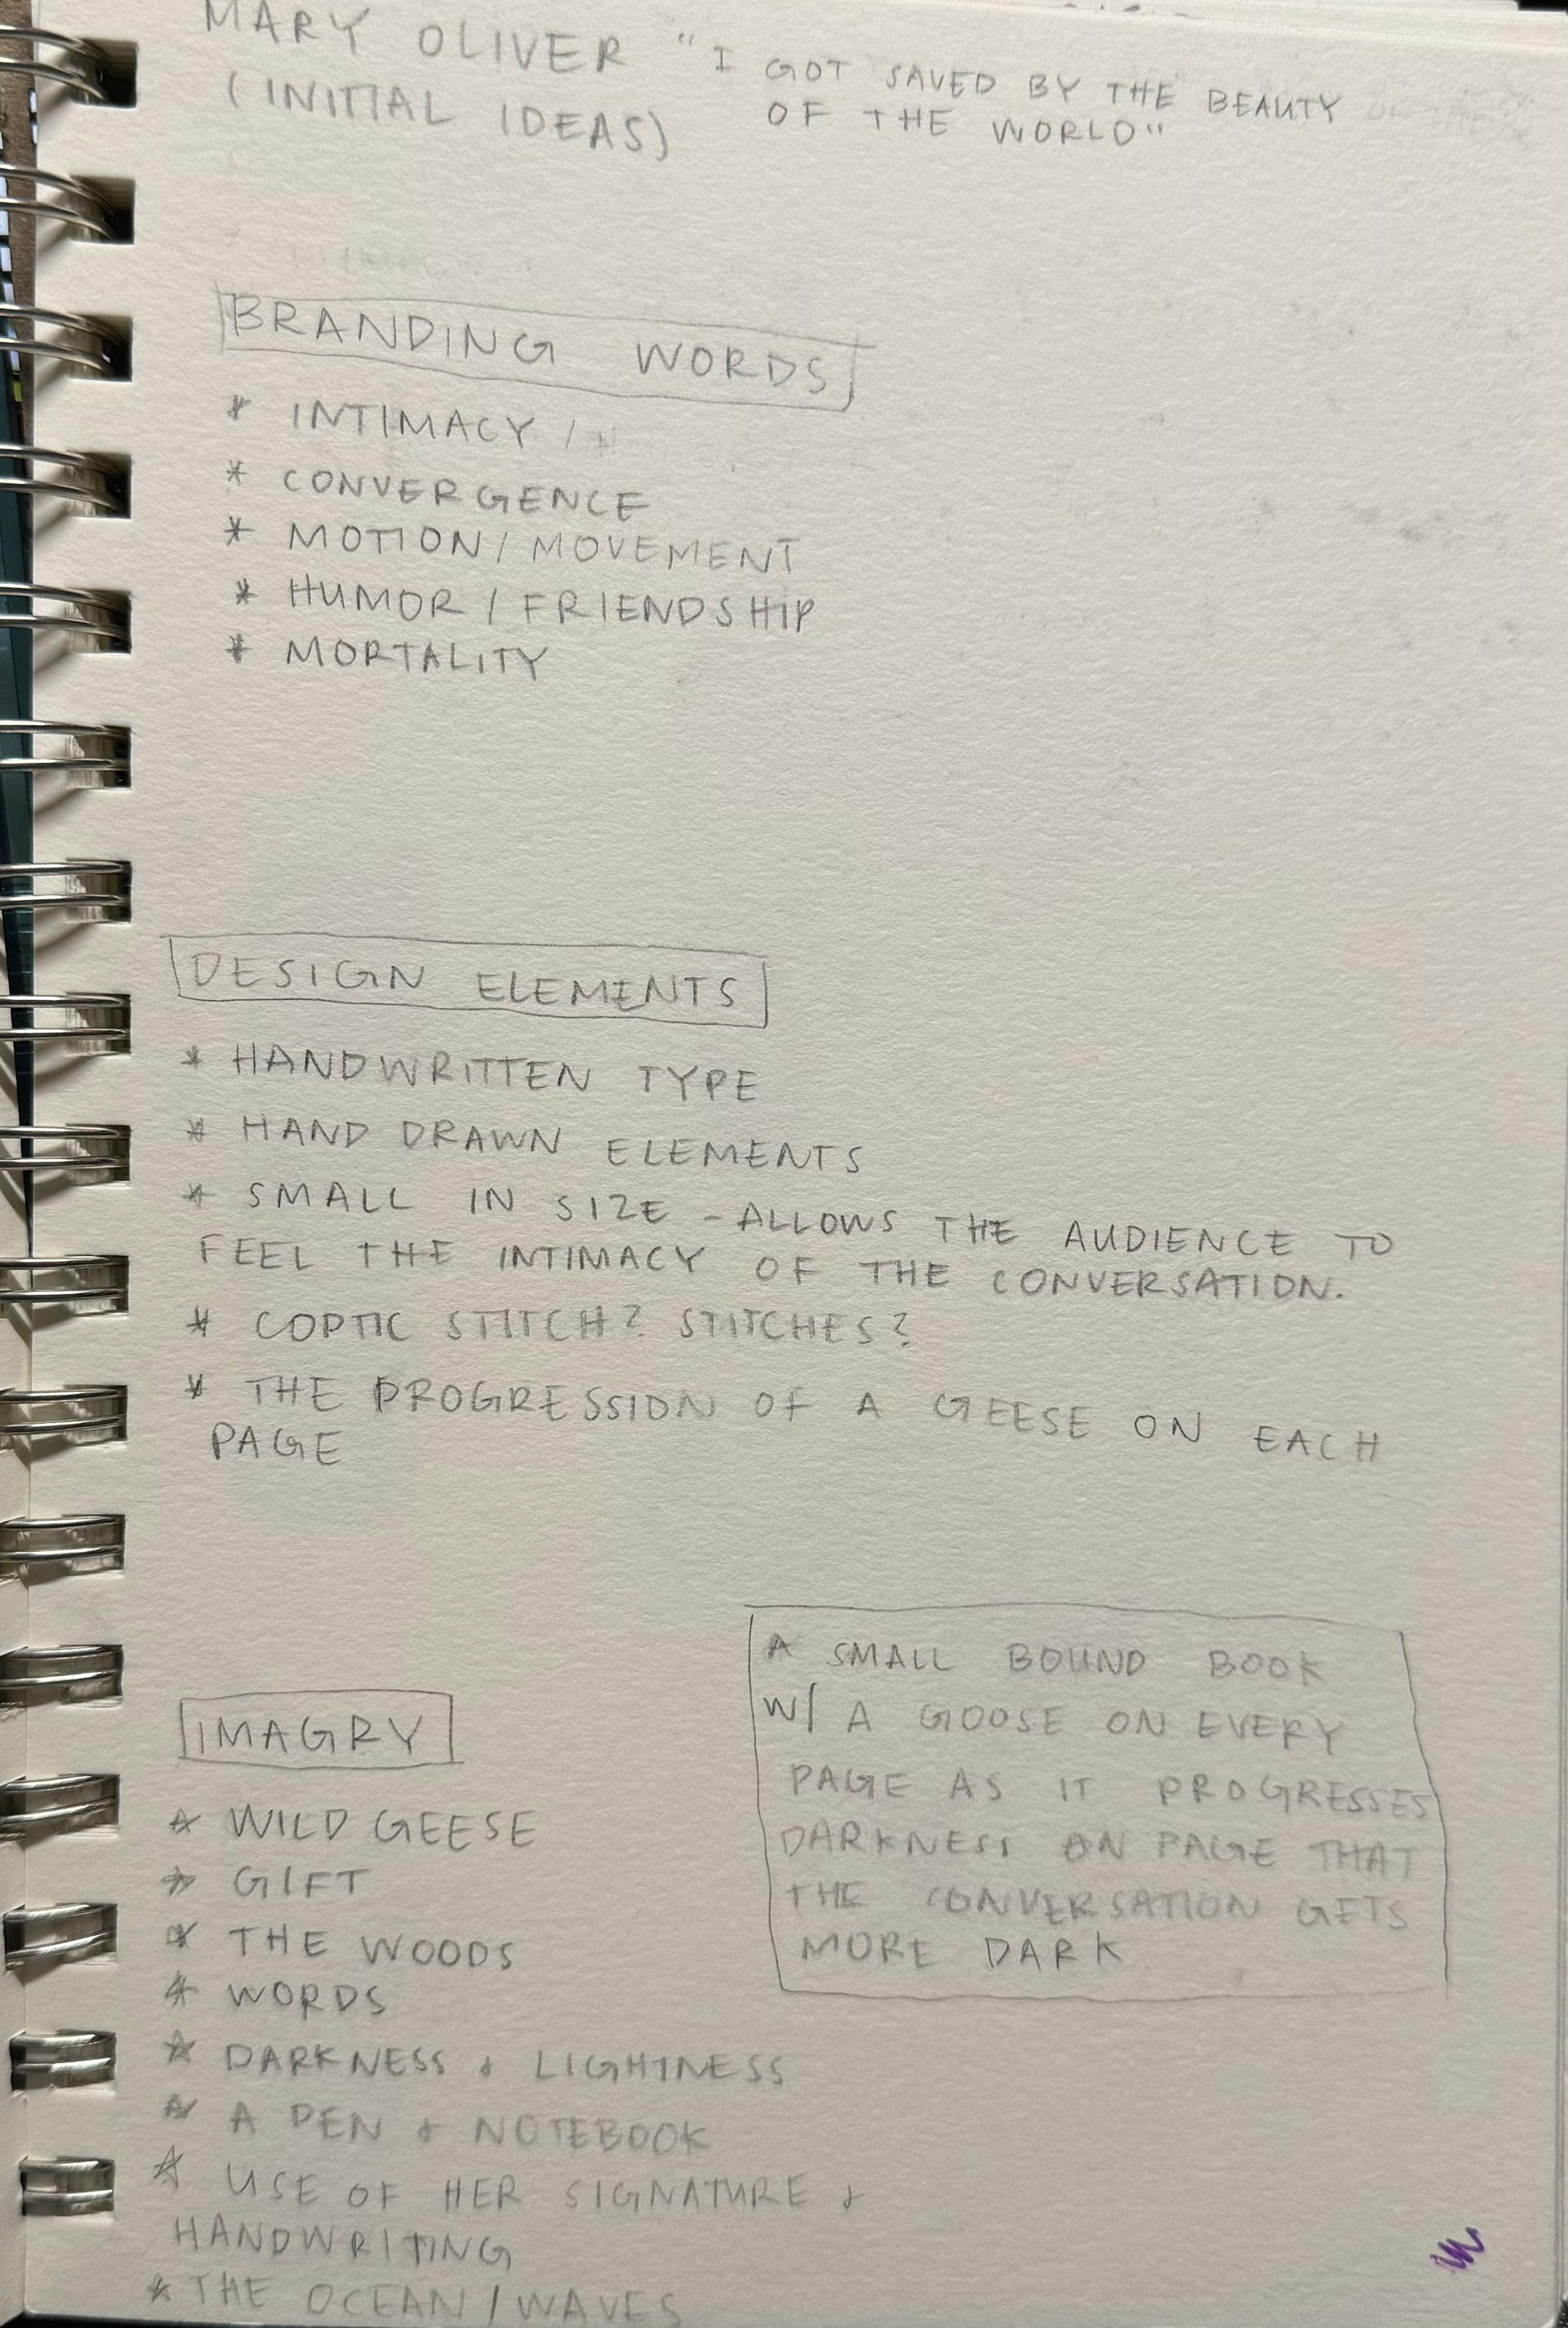 MARY OLIVER "I GOT SAVED BY THE BEAUTY
(INITIAL IDEAS) OF THE WORLD"
BRANDING WORDS
* INTIMACY /
* CONVERGENCE
* MOTION / MOVEMENT
* HUMOR / FRIENDSHIP
* MORTALITY
DESIGN ELEMENTS
* HANDWRITTEN TYPE
* HAND DRAWN ELEMENTS
* SMALL IN SIZE - ALLOWS THE AUDIENCE TO
FEEL THE INTIMACY OF THE CONVERSATION.
* COPTIC STITCH? STITCHES?
* THE PROGRESSION OF A GEESE ON EACH
PAGE
A SMALL BOUND BOOK
W/ A GOOSE ON EVERY
PAGE AS IT PROGRESSES
DARKNESS ON PAGE THAT
THE CONVERSATION GETS
MORE DARK
IMAGRY
* WILD GEESE
* GIFT
* THE WOODS
* WORDS
* DARKNESS & LIGHTNESS
* A PEN & NOTEBOOK
* USE OF HER SIGNATURE &
HANDWRITING
* THE OCEAN / WAVES